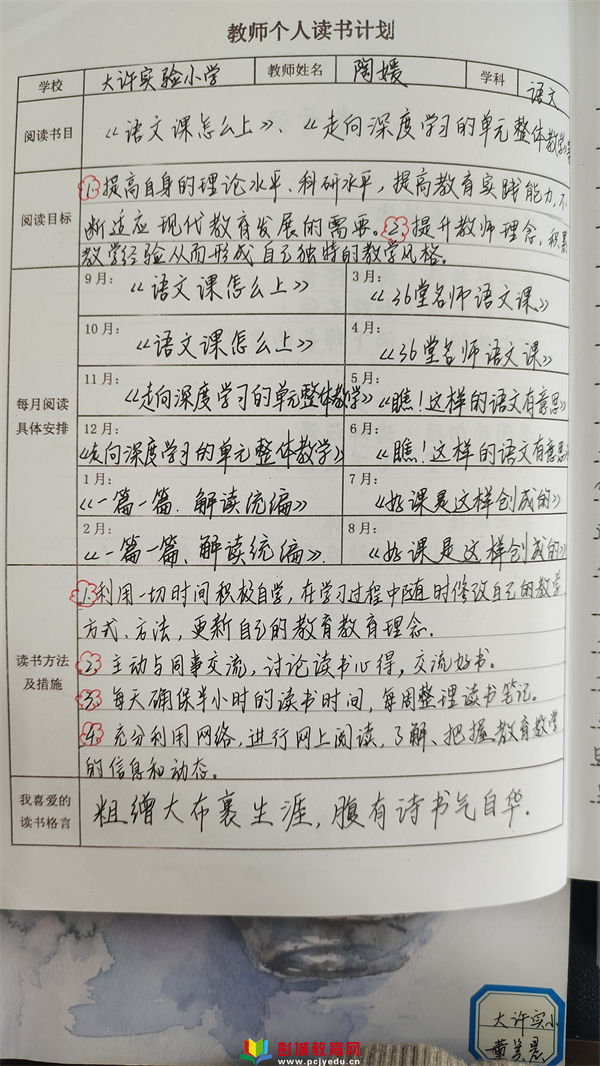 教师个人读书计划
学校 大许实验小学 教师姓名 陶媛 学科 语文
阅读书目 《语文课怎么上》、《走向深度学习的单元整体教学》
阅读目标
①提高自身的理论水平、科研水平，提高教育实践能力，不
断适应现代教育发展的需要。②提升教师理念，积累
教学经验从而形成自己独特的教学风格。
每月阅读
具体安排
9月：《语文课怎么上》 3月：《36堂名师语文课》
10月：《语文课怎么上》 4月：《36堂名师语文课》
11月：《走向深度学习的单元整体教学》 5月：《瞧！这样的语文有意思》
12月：《走向深度学习的单元整体教学》 6月：《瞧！这样的语文有意思
1月：《一篇一篇，解读统编》 7月：《好课是这样创成的》
2月：《一篇一篇、解读统编》. 8月：《好课是这样创成的》
读书方法
及措施
1.利用一切时间积极自学，在学习过程中随时修改自己的教学
方式、方法，更新自己的教育教育理念.
2. 主动与同事交流，讨论读书心得，交流好书.
3. 每天确保半小时的读书时间，每周整理读书笔记。
4. 充分利用网络，进行网上阅读，了解、把握教育教学
的信息和动态。
我喜爱的
读书格言
粗缯大布裹生涯，腹有诗书气自华.
大许实小
彭城教育网
www.pcjyedu.cn